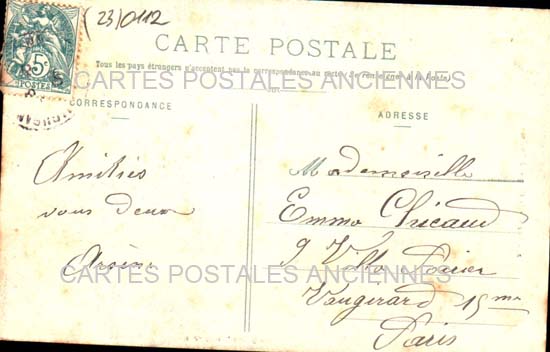 (23)0112
5c
POSTES
CARTE POSTALE
Tous les pays étrangers n'acceptent pas la correspondance au recto (Se renseigner à la Poste)
CARTES POSTALES ANCIENNES
CORRESPONDANCE
ADRESSE
Amitiés
vous deux
Arsène
Mademoiselle
Emma
9 Villa Poirier
Vaugirard 15me
Paris
CARTES POSTALES ANCIENNES